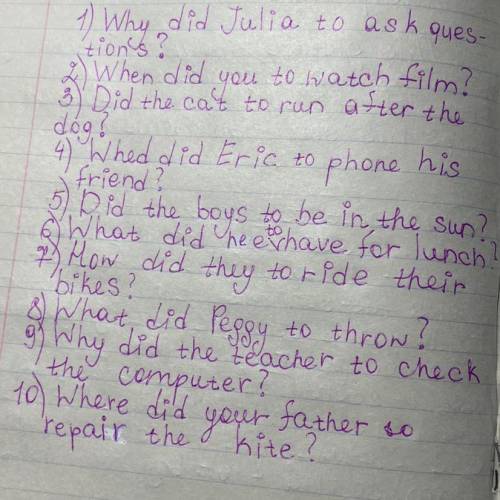 1) Why did Julia to ask ques-
tions?
2) When did you to watch film?
3) Did the cat to run after the
dog?
4) Whed did Eric to phone his
friend?
5) Did the boys to be in the sun?
6) What did he to have for lunch?
7) How did they to ride their
bikes?
8) What did Peggy to throw?
9) Why did the teacher to check
the computer?
10) Where did your father so
repair the kite?